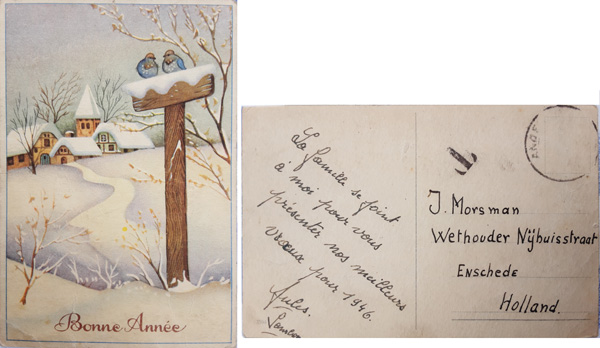 Bonne Année
La famille se joint
à moi pour vous
présenter nos meilleurs
vœux pour 1946.
Jules.
T
J. Morsman
Wethouder Nijhuisstraat
Enschede
Holland.